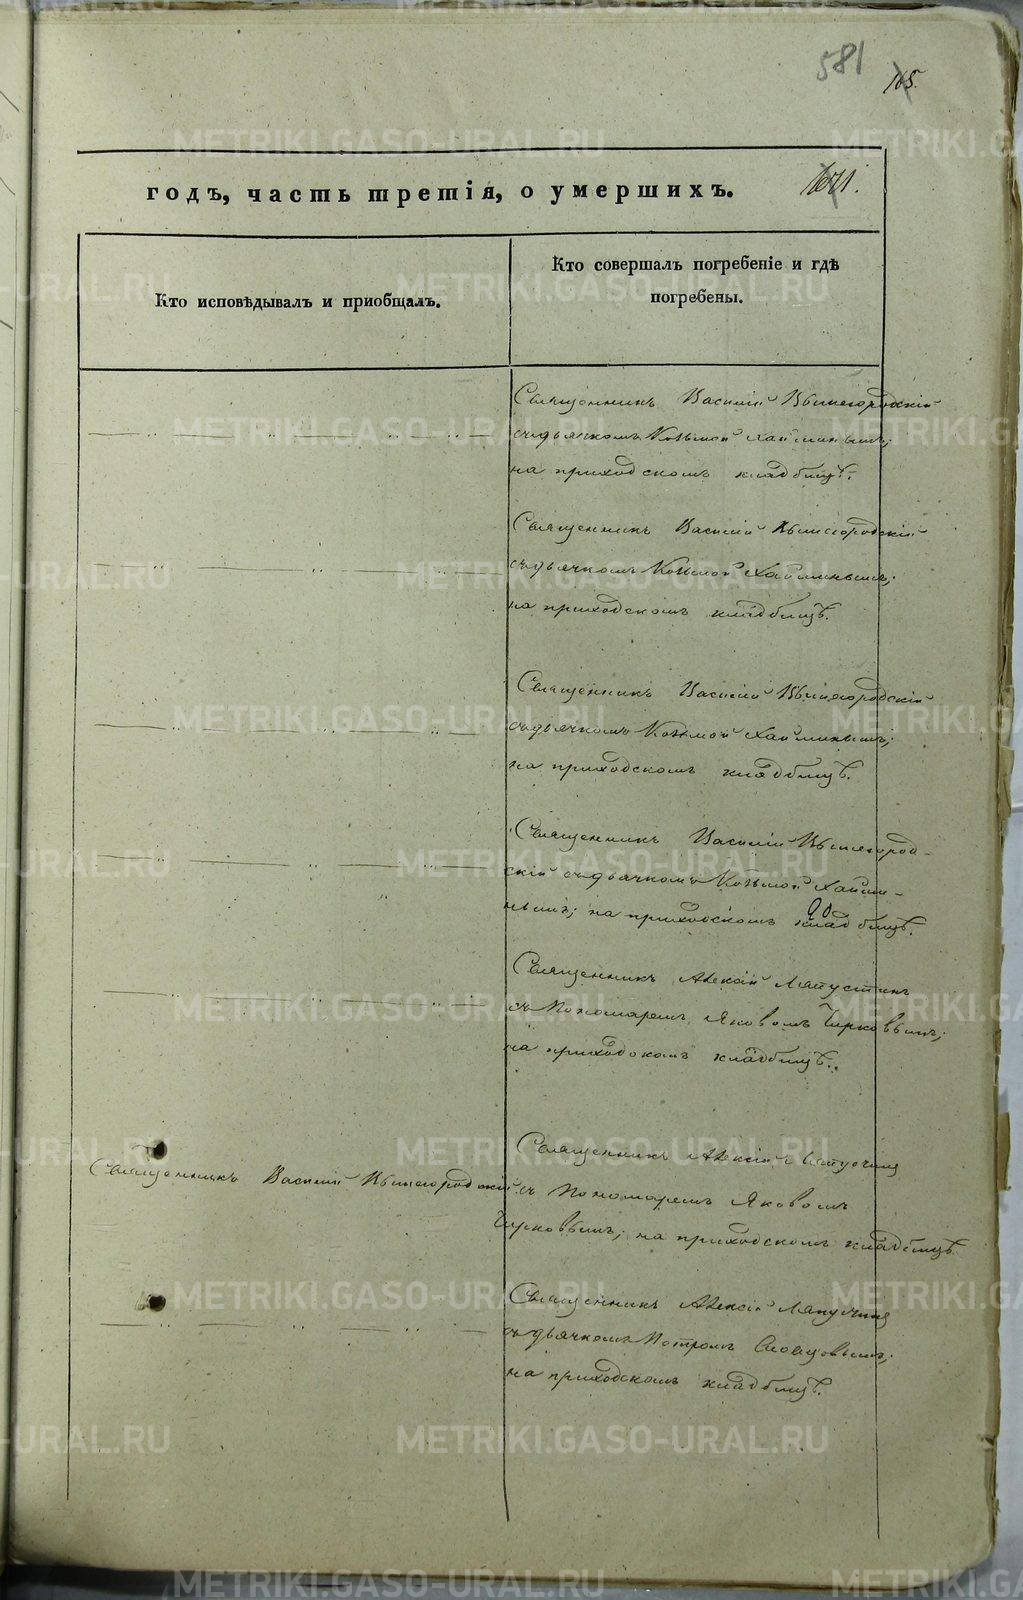 581
165.
годъ, часть третія, о умершихъ.
Кто исповѣдывалъ и приобщалъ.
Кто совершалъ погребеніе и гдѣ
погребены.
Священникъ Василій Вышегородскій
съ дьячкомъ Козьмой Хайминымъ;
на приходскомъ кладбищѣ.
Священникъ Василій Вышегородскій
съ дьячкомъ Козьмой Хайминымъ;
на приходскомъ кладбищѣ.
Священникъ Василій Вышегородскій
съ дьячкомъ Козьмой Хайминымъ;
на приходскомъ кладбищѣ.
Священникъ Василій Вышегород-
скій съ дьячкомъ Козьмой Хайми-
нымъ; на приходскомъ кладбищѣ.
Священникъ Алексій Ляпустинъ
съ Пономаремъ Яковомъ Чирковымъ;
на приходскомъ кладбищѣ.
Священникъ Василій Вышегородскій
Священникъ Алексій Ляпустинъ
съ Пономаремъ Яковомъ
Чирковымъ; на приходскомъ кладбищѣ
Священникъ Алексій Ляпустинъ
съ дьячкомъ Петромъ Словцовымъ;
на приходскомъ кладбищѣ.
METRIKI.GASO-URAL.RU